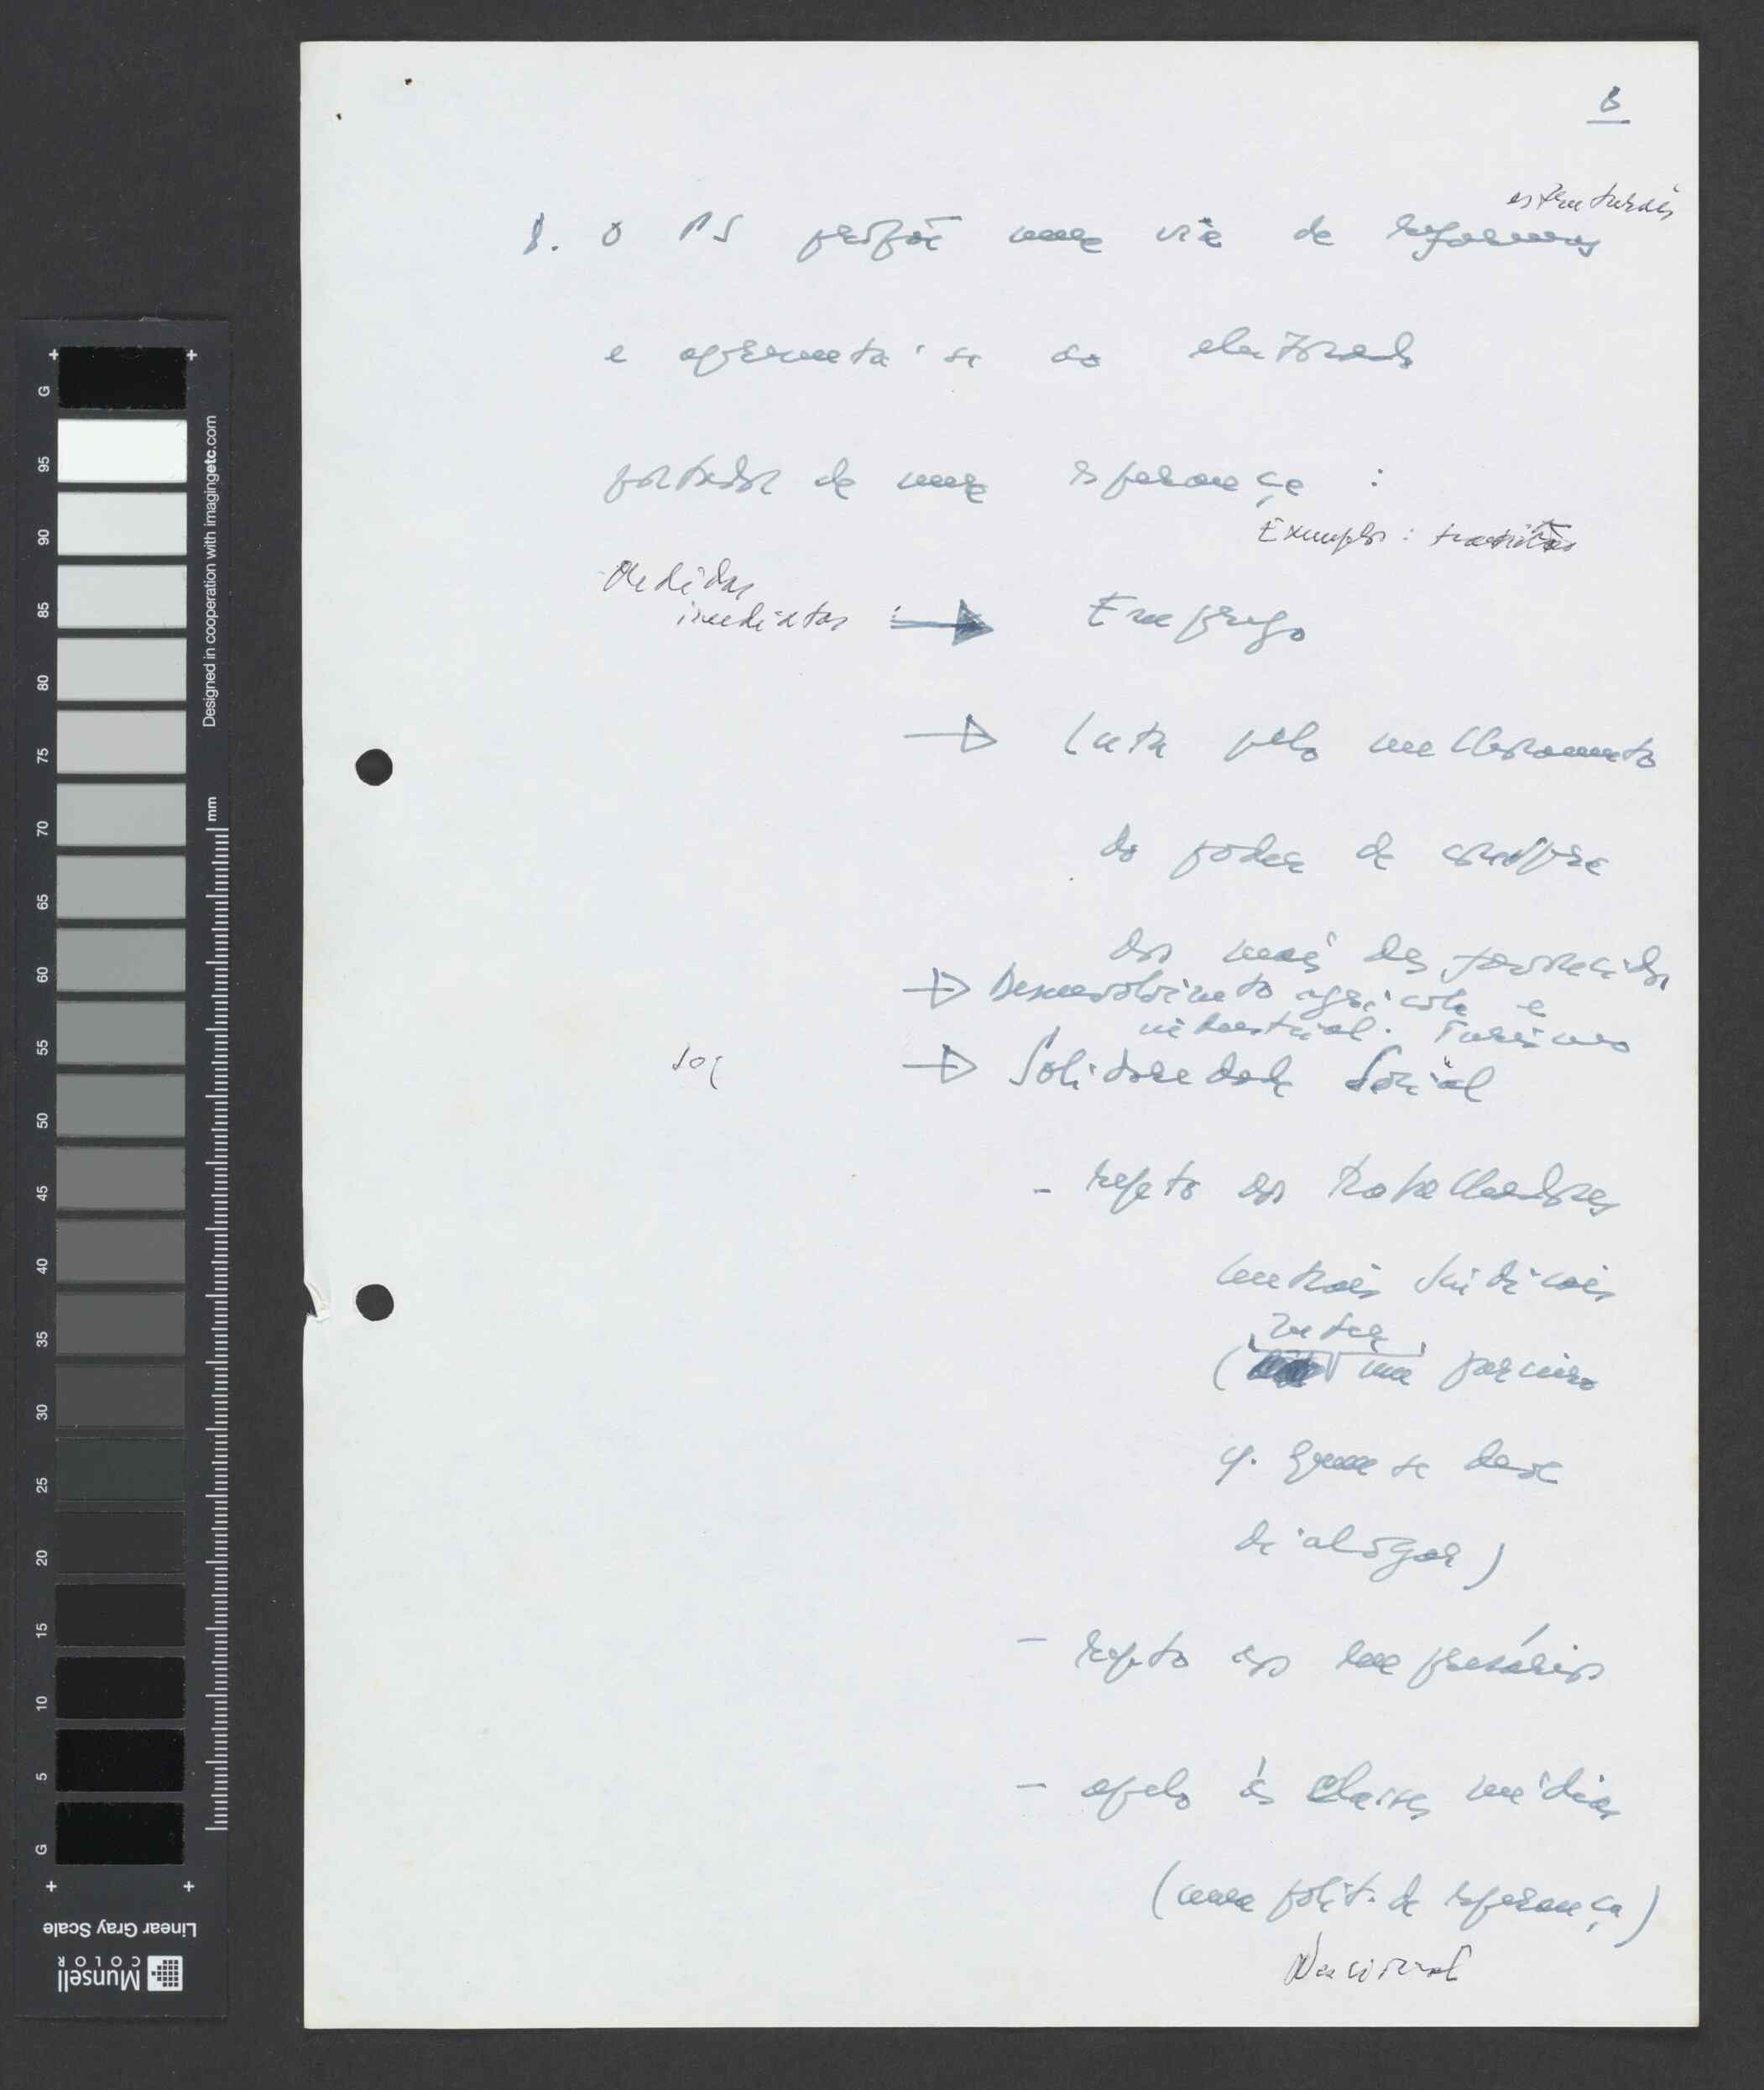 8
estruturais
8. O PS propõe uma via de reformas
e apresenta-se ao eleitorado
portador de uma esperança :
Exemplos :
Medidas
imediatas : → Emprego
→ Luta pelo melhoramento
do poder de compra
dos mais desfavorecidos
→ Desenvolvimento agrícola e
industrial. Turismo
soc → Solidariedade Social
- repto aos trabalhadores
centrais sindicais
(um parceiro
c/. quem se deve
dialogar)
- repto aos empresários
- apelo às classes médias
(uma polít. de esperança)
Nacional
G
95
90
85
80
75
70
65
60
55
50
45
40
35
30
25
20
15
10
5
G
mm
Designed in cooperation with imagingetc.com
Linear Gray Scale
Munsell
COLOR